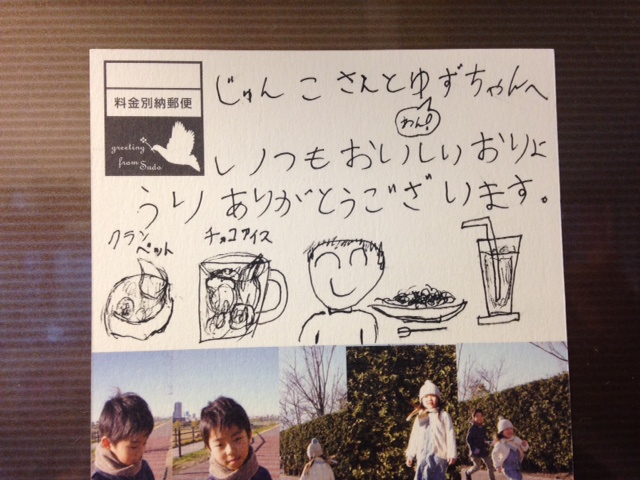 料金別納郵便
greeting
from Sudo
じゅんこさんとゆずちゃんへ
わん!
いつもおいしいおりょ
うりありがとうございます。
クラン
ペット
チョコアイス